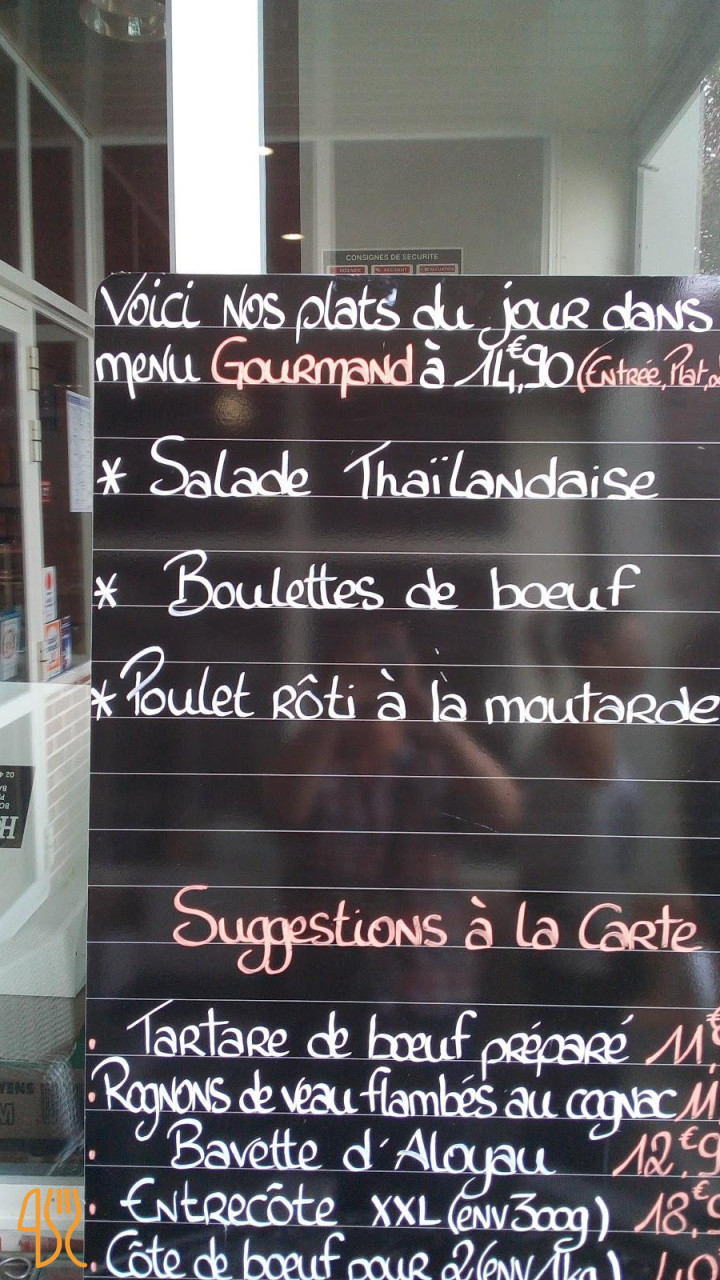 CONSIGNES DE SECURITE
Voici nos plats du jour dans
menu Gourmand à 14,€90 (Entrée, Plat,
* Salade Thaïlandaise
* Boulettes de bœuf
* Poulet rôti à la moutarde
Suggestions à la Carte
. Tartare de bœuf préparé 11,€
. Rognons de veau flambés au cognac 11
. Bavette d'Aloyau 12,€9
. Entrecôte XXL (env 300g) 18,€9
. Côte de bœuf pour 2 (env 1kg)